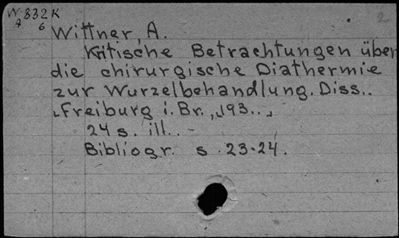 W832K
A 6
2
Wittner, A.
Kritische Betrachtungen über
die chirurgische Diathermie
zur Wurzelbehandlung. Diss..
Freiburg i. Br., 193..,
24 s. ill..
Bibliogr. s. 23-24.